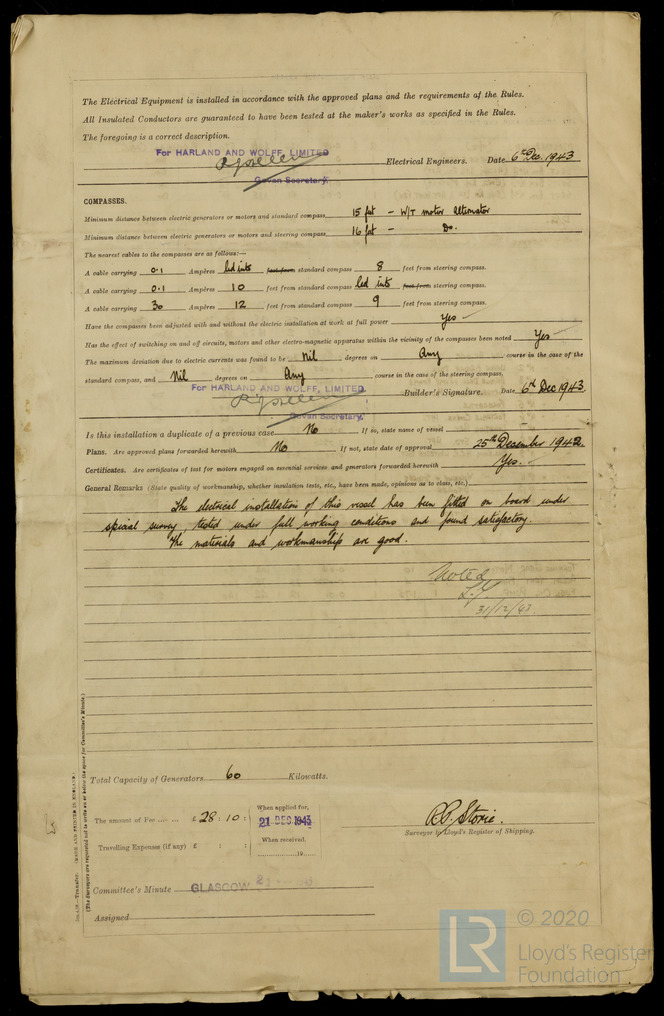 The Electrical Equipment is installed in accordance with the approved plans and the requirements of the Rules.
All Insulated Conductors are guaranteed to have been tested at the maker's works as specified in the Rules.
The foregoing is a correct description.
For HARLAND AND WOLFF, LIMITED
Electrical Engineers. Date 6th Dec. 1943
Govan Secretary.
COMPASSES.
Minimum distance between electric generators or motors and standard compass 15 feet - W/T motor alternator
Minimum distance between electric generators or motors and steering compass 16 feet - Do.
The nearest cables to the compasses are as follows:—
A cable carrying 0.1 Ampères led into feet from standard compass 8 feet from steering compass.
A cable carrying 0.1 Ampères 10 feet from standard compass led into feet from steering compass.
A cable carrying 30 Ampères 12 feet from standard compass 9 feet from steering compass.
Have the compasses been adjusted with and without the electric installation at work at full power Yes
Has the effect of switching on and off circuits, motors and other electro-magnetic apparatus within the vicinity of the compasses been noted Yes
The maximum deviation due to electric currents was found to be Nil degrees on Any course in the case of the
standard compass, and Nil degrees on Any course in the case of the steering compass.
For HARLAND AND WOLFF, LIMITED.
Builder's Signature. Date 6th Dec 1943.
Govan Secretary.
Is this installation a duplicate of a previous case No If so, state name of vessel -
Plans. Are approved plans forwarded herewith No If not, state date of approval 25th December 1942
Certificates. Are certificates of test for motors engaged on essential services and generators forwarded herewith Yes.
General Remarks (State quality of workmanship, whether insulation tests, etc., have been made, opinions as to class, etc.)
The electrical installation of this vessel has been fitted on board under
special survey, tested under full working conditions and found satisfactory.
The materials and workmanship are good.
Noted
31/12/43
Total Capacity of Generators 60 Kilowatts.
The amount of Fee ... ... £28 : 10 :
When applied for,
21 DEC 1943
When received.
Travelling Expenses (if any) £ : :
19
R.C. Storie.
Surveyor to Lloyd's Register of Shipping.
Committee's Minute GLASGOW
Assigned
(The Surveyors are requested not to write on or below the space for Committee's Minute.)
(MADE AND PRINTED IN ENGLAND.)
LR
© 2020
Lloyd's Register
Foundation